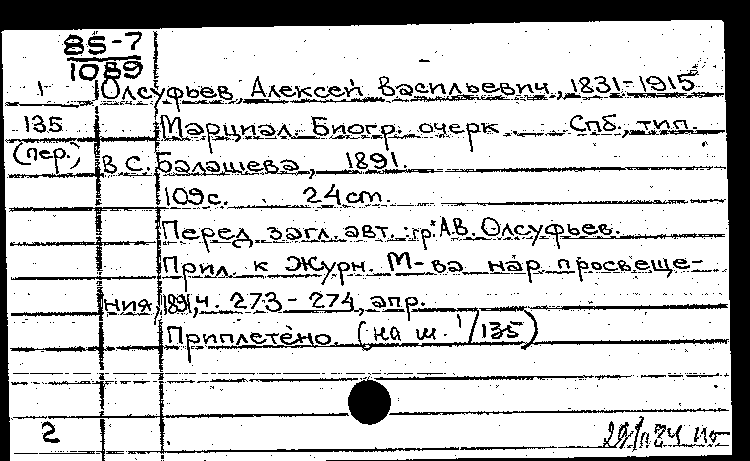 85-7
1089
1 Олсуфьев, Алексей Васильевич, 1831-1915
135 Марциал. Биогр. очерк Спб., тип.
(пер.) В.С. Балашева, 1891.
109с. 24 cm.
Перед загл. авт.: гр. А.В. Олсуфьев.
Прил. к Журн. М-ва нар просвеще-
ния, 1891, ч. 273-274, апр.
Приплетено. (на ш. 1/135)
2